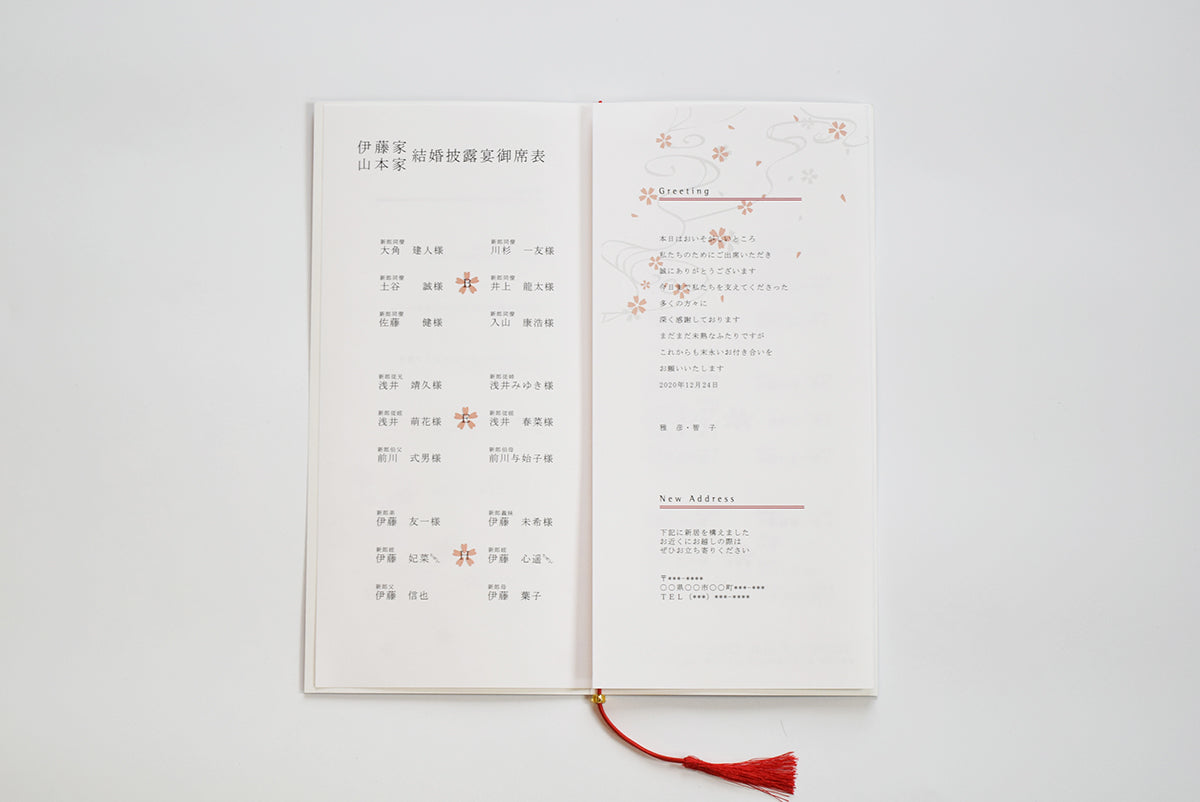 伊藤家
山本家
結婚披露宴御席表
新郎同僚 新郎同僚
大角 建人様 川杉 一友様
新郎同僚 新郎同僚
土谷 誠様 B 井上 龍太様
新郎同僚 新郎同僚
佐藤 健様 入山 康浩様
新郎従兄 新郎従姉
浅井 靖久様 浅井みゆき様
浅井 萌花様 E 浅井 春菜様
新郎伯父 新郎伯母
前川 式男様 前川与始子様
新郎弟 新郎義妹
伊藤 友一様 伊藤 未希様
新郎姪 新郎姪
伊藤 妃菜 H 伊藤 心遥
新郎父 新郎母
伊藤 信也 伊藤 葉子
Greeting
本日はおいそがしいところ
私たちのためにご出席いただき
誠にありがとうございます
今日まで私たちを支えてくださった
多くの方々に
深く感謝しております
まだまだ未熟なふたりですが
これからも末永いお付き合いを
お願いいたします
2020年12月24日
雅 彦・智 子
New Address
下記に新居を構えました
お近くにお越しの際は
ぜひお立ち寄りください
〒***-****
○○県○○市○○町***-***
TEL (***) ***-****